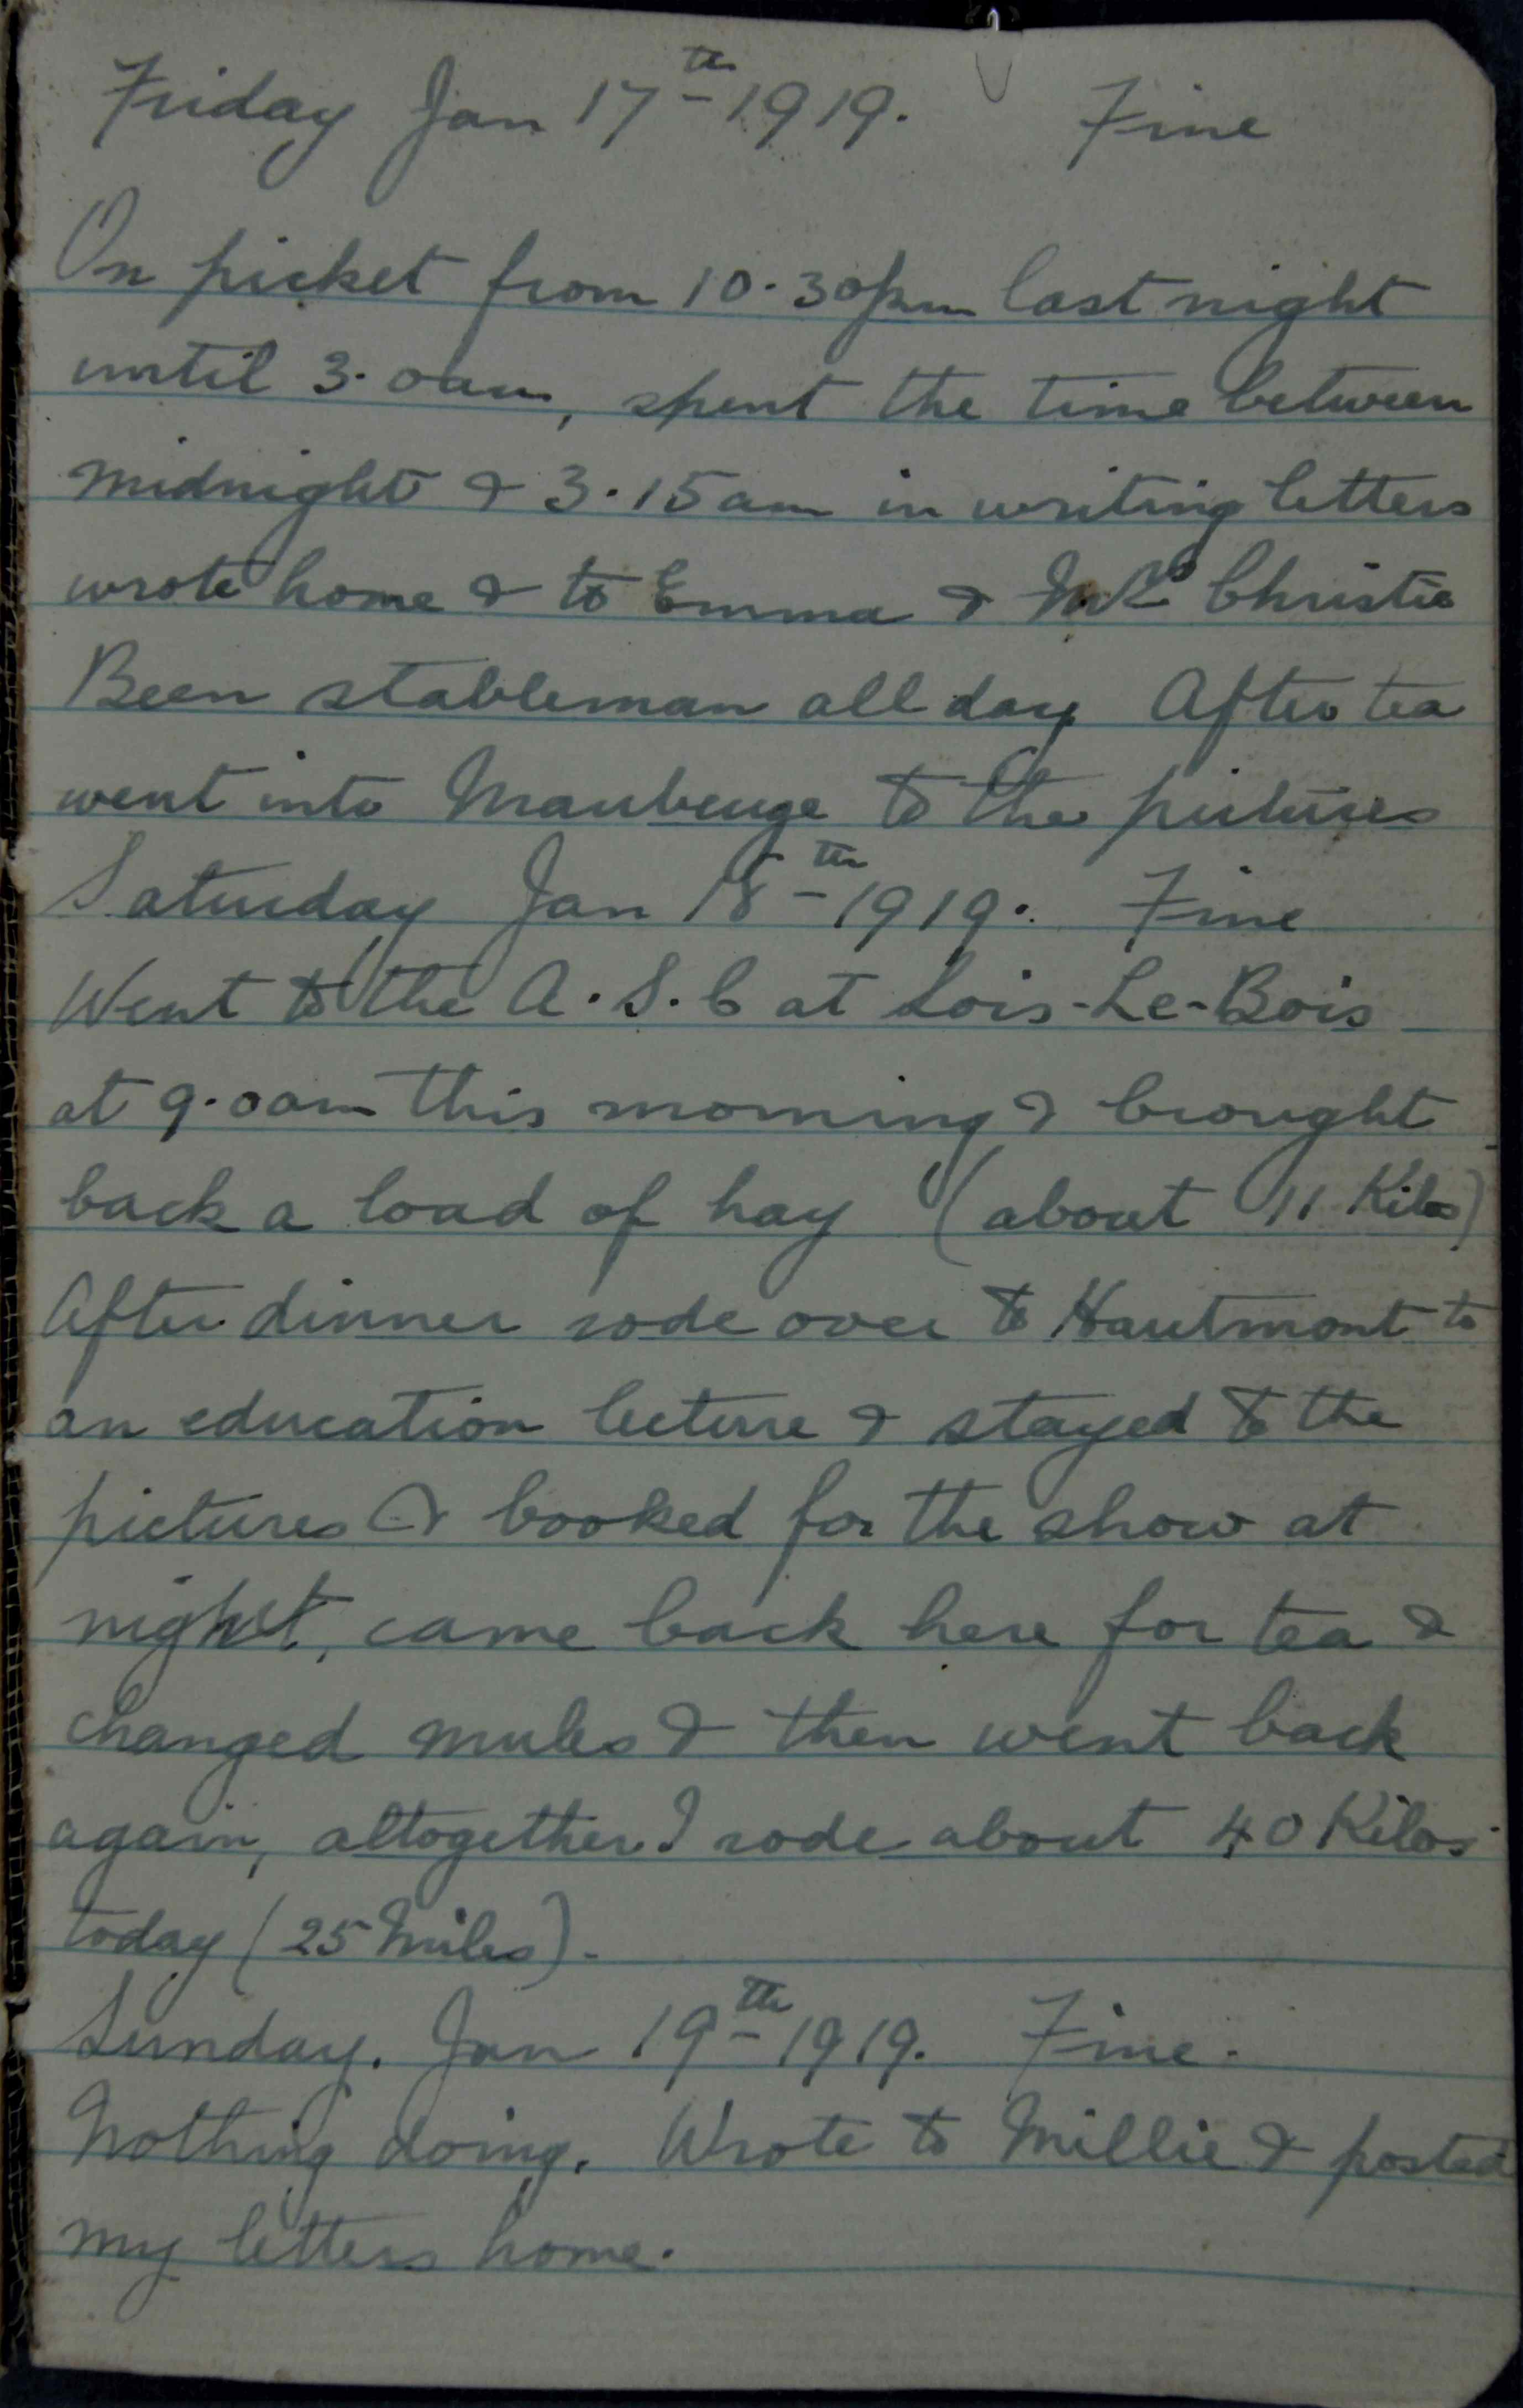 Friday Jan 17th 1919. Fine
On picket from 10.30pm last night
until 3.0am, spent the time between
midnight & 3.15am in writing letters
wrote home & to Emma & Mrs Christie
Been stableman all day. After tea
went into Maubeuge to the pictures
Saturday Jan 18th 1919. Fine
Went to the A.S.C at Sois-Le-Bois
at 9.0am this morning & brought
back a load of hay (about 11 Kilos)
After dinner rode over to Hautmont to
an education lecture & stayed to the
pictures & booked for the show at
night, came back here for tea &
changed mules & then went back
again, altogether I rode about 40 Kilos
today (25 Miles).
Sunday. Jan 19th 1919. Fine.
Nothing doing. Wrote to Millie & posted
my letters home.